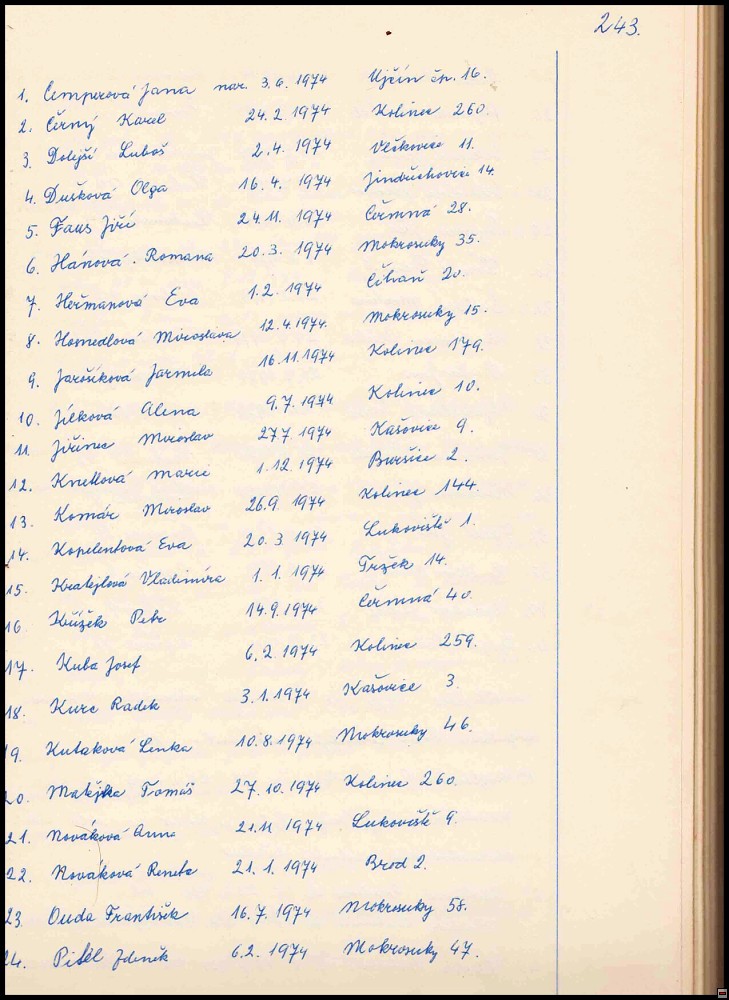 243.
1. Cemperová Jana nar. 3.6.1974 Ujčín čp. 16.
2. Černý Karel 24.2.1974 Kolinec 260.
3. Dolejší Luboš 2.4.1974 Vlčkovice 11.
4. Dušková Olga 16.4.1974 Jindřichovice 14.
5. Faus Jiří 24.11.1974 Čermná 28.
6. Hánová Romana 20.3.1974 Mokrosuky 35.
7. Heřmanová Eva 1.2.1974 Číhaň 20.
8. Homedlová Miroslava 12.4.1974. Mokrosuky 15.
9. Jarošíková Jarmila 16.11.1974 Kolinec 179.
10. Jílková Alena 9.7.1974 Kolinec 10.
11. Jiřinec Miroslav 27.7.1974 Kašovice 9.
12. Knetlová Marie 1.12.1974 Buršice 2.
13. Komár Miroslav 26.9.1974 Kolinec 144.
14. Kopelentová Eva 20.3 1974 Lukoviště 1.
15. Kratejlová Vladimíra 1.1.1974 Tržek 14.
16 Křížek Petr 14.9.1974 Čermná 40.
17. Kuba Josef 6.2.1974 Kolinec 259.
18. Kurc Radek 3.1.1974 Kašovice 3.
19. Kutaková Lenka 10.8.1974 Mokrosuky 46.
20. Matějka Tomáš 27.10.1974 Kolinec 260.
21. Nováková Anna 21.11 1974 Lukoviště 9.
22. Nováková Reneta 21.1.1974 Brod 2.
23. Ouda František 16.7.1974 Mokrosuky 58.
24. Zdeněk 6.2.1974 Mokrosuky 47.